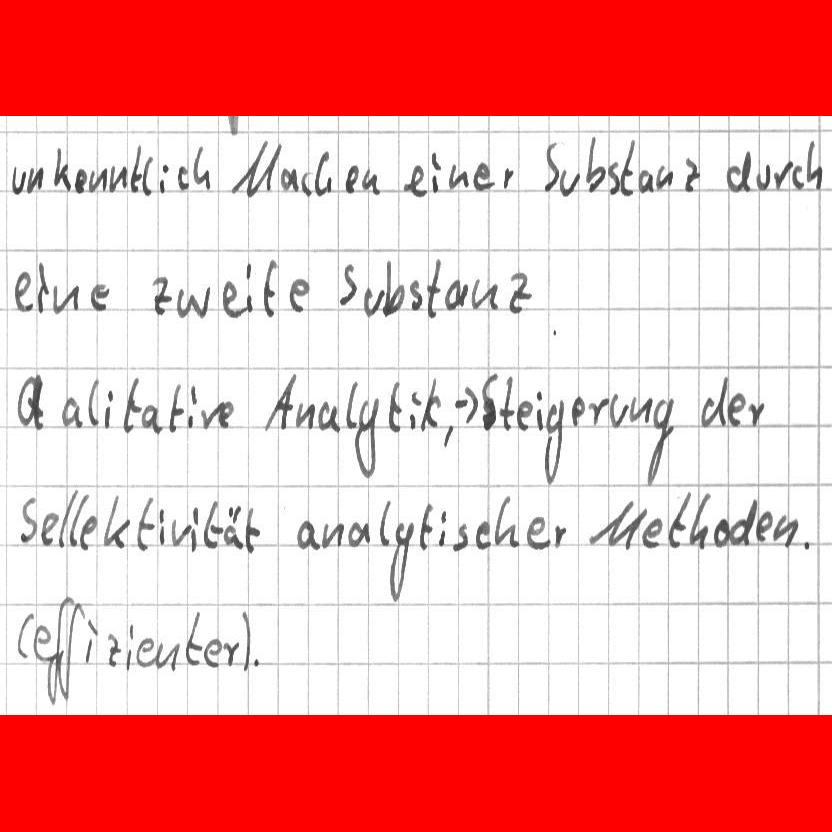 unkenntlich Machen einer Substanz durch
eine zweite Substanz.
Qalitative Analytik, → Steigerung der
Sellektivität analytischer Methoden.
(effizienter).